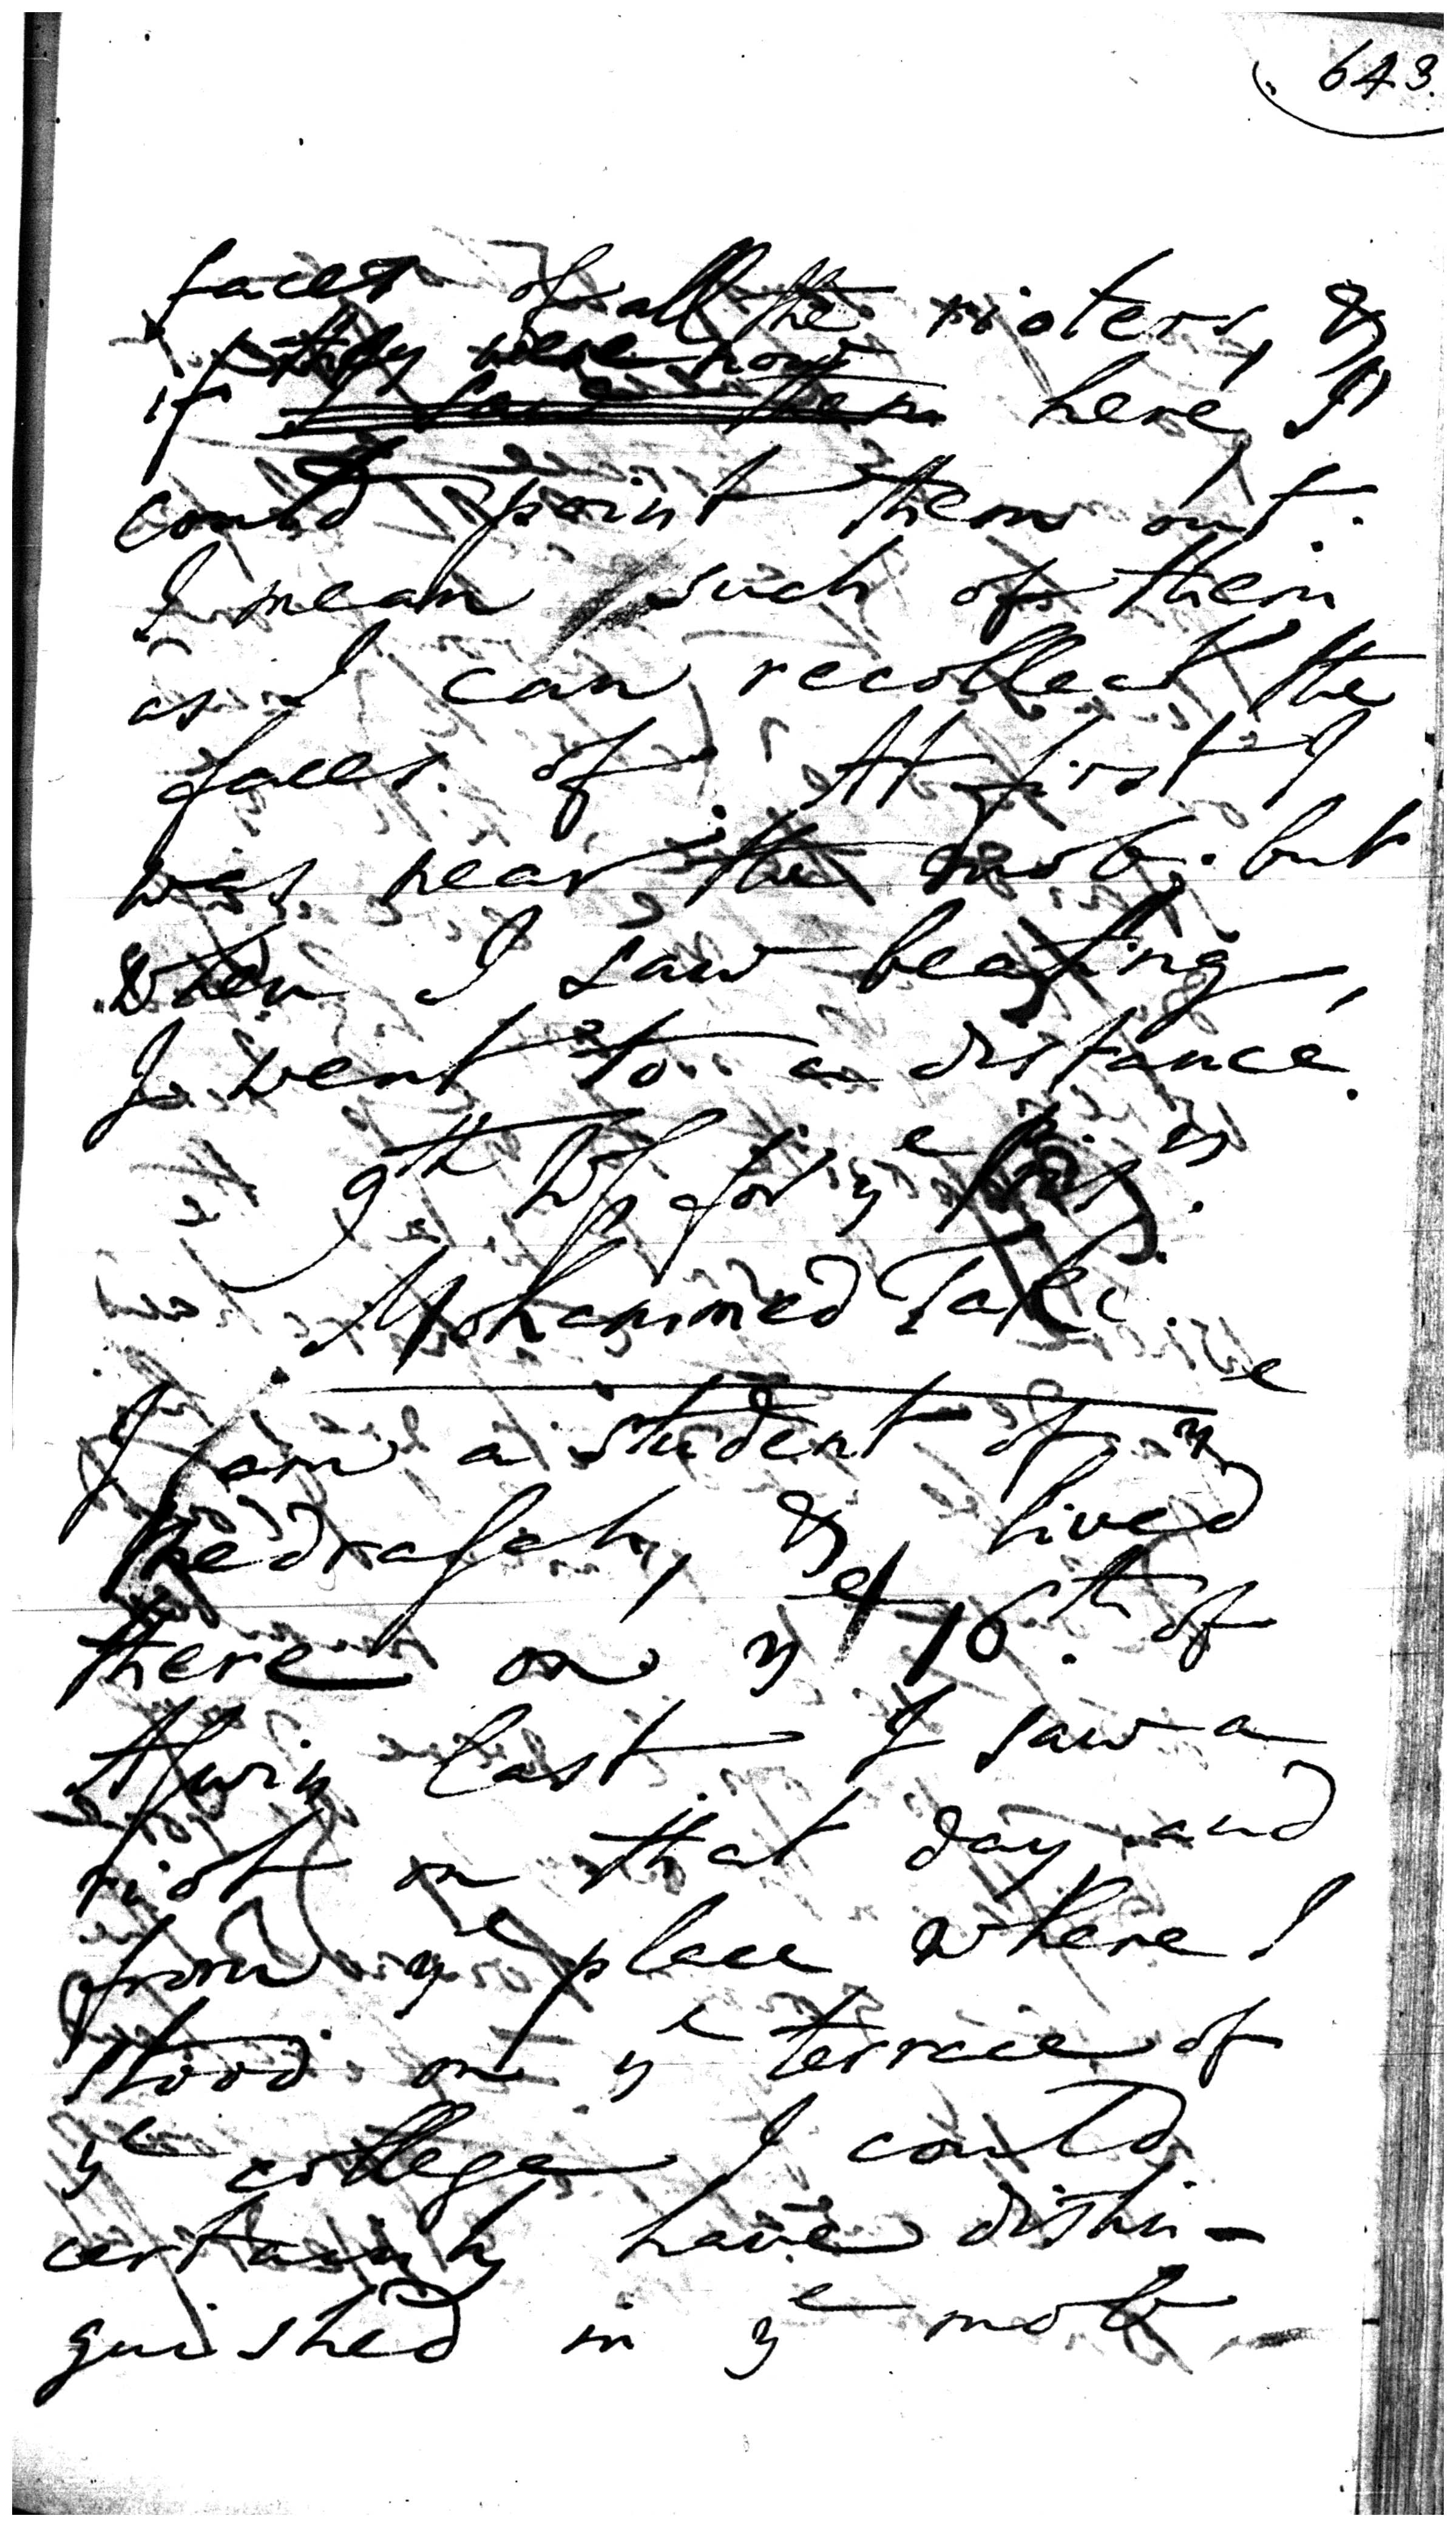 643.
faces of all the rioters, &
they were now
if I saw them here I
could point them out.
I mean such of them
as I can recollect the
faces of. At first I
was near the mob, but
when I saw beating,
I went to a distance.
9th W. for ye
Mohammed Taki.
I am a student of ye
Medrasah, & lived
there on ye 10th of
Aswin last. I saw a
riot on that day and
from ye place where I
stood on ye terrace of
ye college I could
certainly have distin-
guished in ye mob